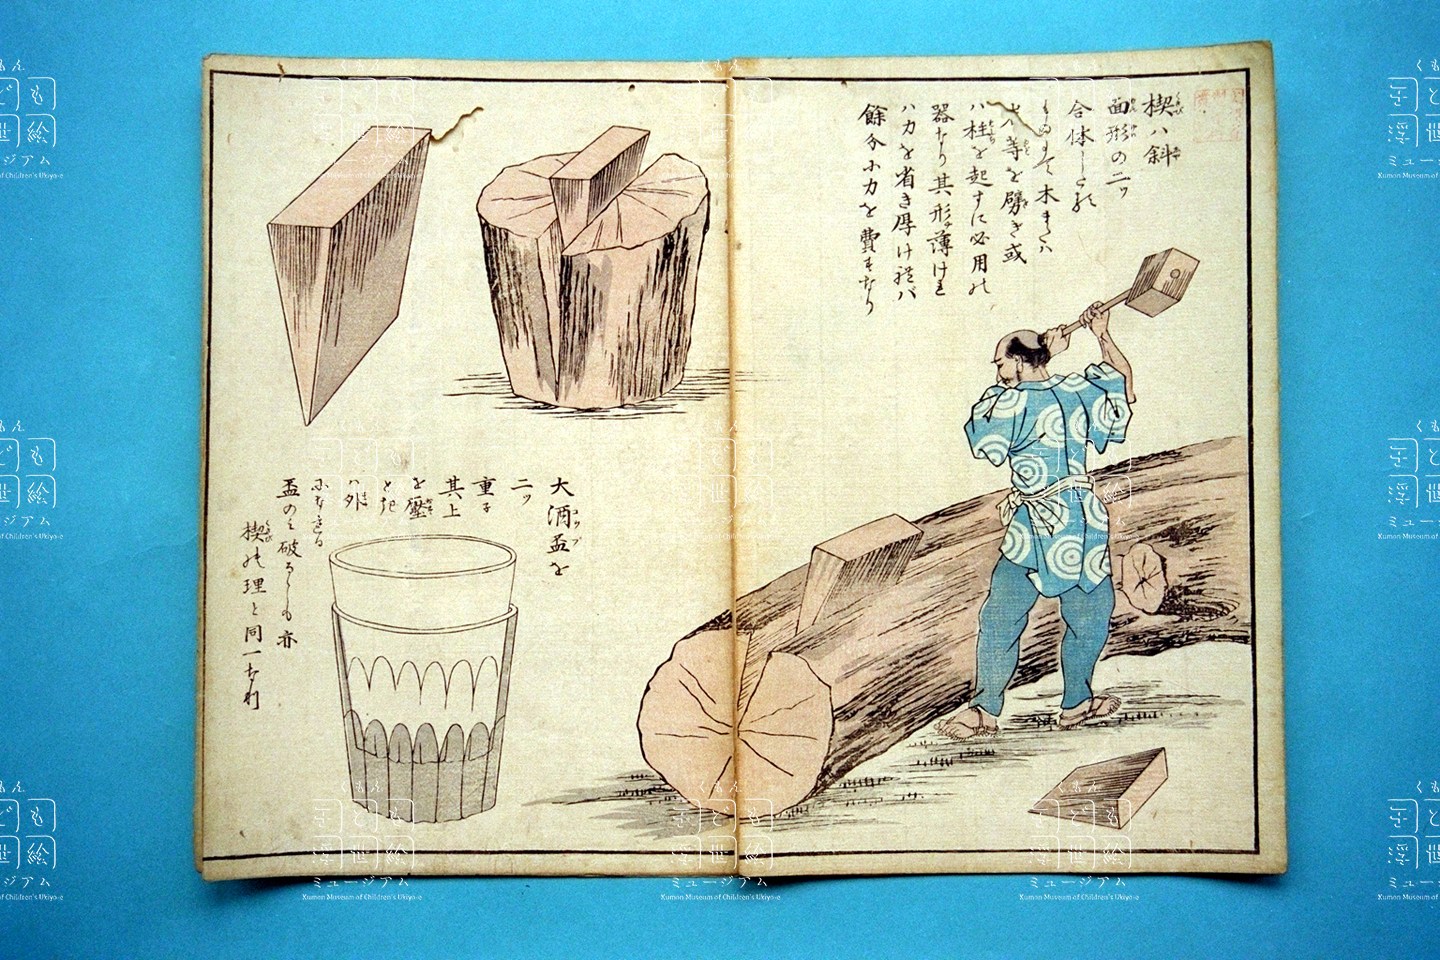 楔ハ斜
面形の二ッ
合体したる
ものにて木または
等を劈き或
ハ柱を起すに必用の
器なり其形薄けれ
ハ力を省き厚けれバ
餘分に力を費すなり
大酒盃を
二ッ
重ね
其上
を壓
ときハ
外
になりたる
盃のみ破るゝも亦
楔の理と同一なり
くもん
子ども
浮世絵
ミュージアム
Kumon Museum of Children's Ukiyo-e